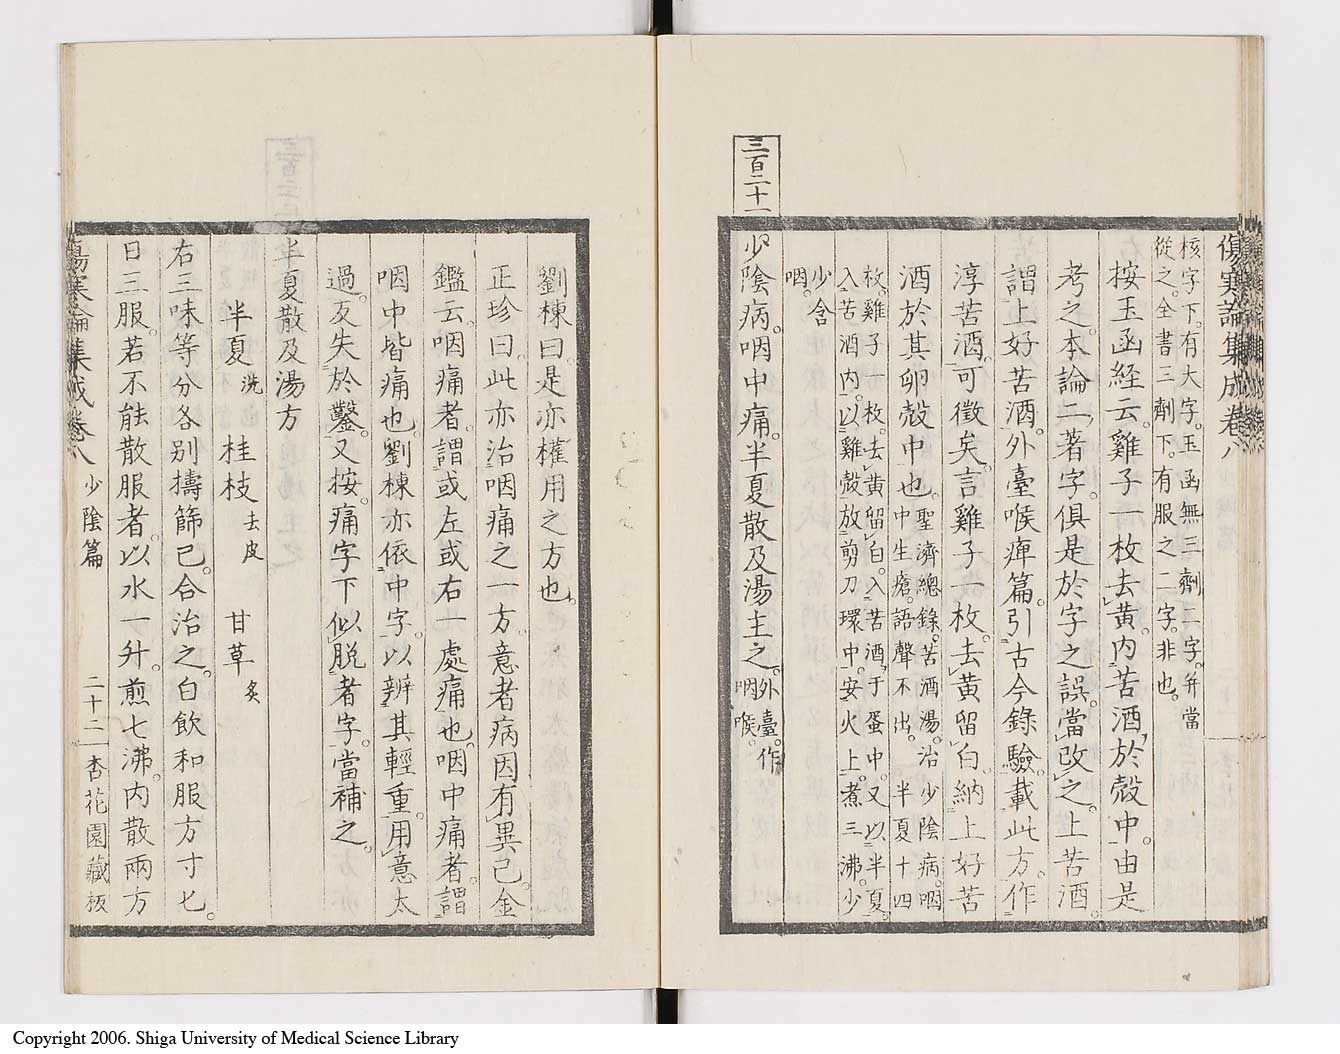 傷寒論集成卷八
核字下。有大字。玉函無三劑二字。并當
從之。全書三劑下。有服之二字。非也。
按玉函經云。雞子一枚去黃。內苦酒於殼中。由是
考之。本論二著字。俱是於字之誤。當改之。上苦酒。
謂上好苦酒。外臺喉痺篇。引古今錄驗。載此方。作
淳苦酒。可徵矣。言雞子一枚。去黃留白。納上好苦
酒於其卵殼中也。聖濟總錄。苦酒湯。治少陰病。咽
中生瘡。語聲不出。半夏十四
枚。雞子一枚。去黃留白。入苦酒于蛋中。又以半夏。
入苦酒內。以雞殼放剪刀環中。安火上。煮三沸。少
少含
咽。
三百二十一
少陰病。咽中痛。半夏散及湯主之。外臺。作
咽喉。
劉棟曰。是亦權用之方也。
正珍曰。此亦治咽痛之一方。意者病因有異已。金
鑑云。咽痛者。謂或左或右一處痛也。咽中痛者。謂
咽中皆痛也。劉棟亦依中字。以辨其輕重。用意太
過。反失於鑿。又按。痛字下似脫者字。當補之。
半夏散及湯方
半夏洗 桂枝去皮 甘草炙
右三味等分各別擣篩已。合治之。白飲和服方寸匕。
日三服。若不能散服者。以水一升。煎七沸。內散兩方
傷寒論集成卷八 少陰篇 二十二 杏花園藏板
Copyright 2006. Shiga University of Medical Science Library